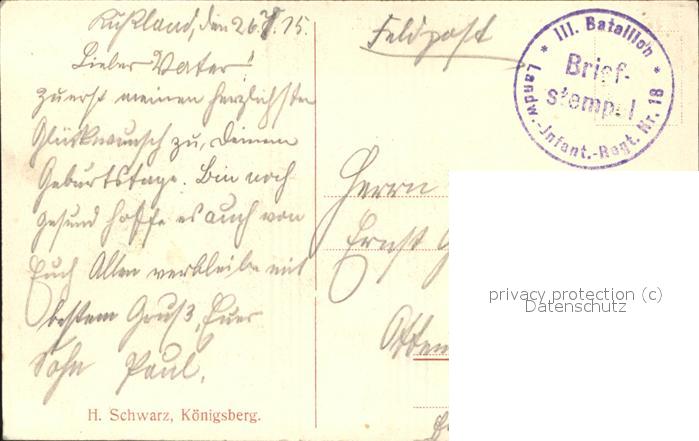 Rußland, den 26.7.15.
Lieber Vater!
zuerst meinen herzlichsten
Glückwunsch zu Deinem
Geburtstage. Bin noch
gesund hoffe es auch von
Euch Allen verbleibe mit
bestem Gruß, Euer
Sohn Paul.
H. Schwarz, Königsberg.
Feldpost
* III. Bataillon *
Brief-
stempel
Landw.-Infant.-Regt. Nr. 18
Herrn
Ernst
privacy protection (c)
Datenschutz